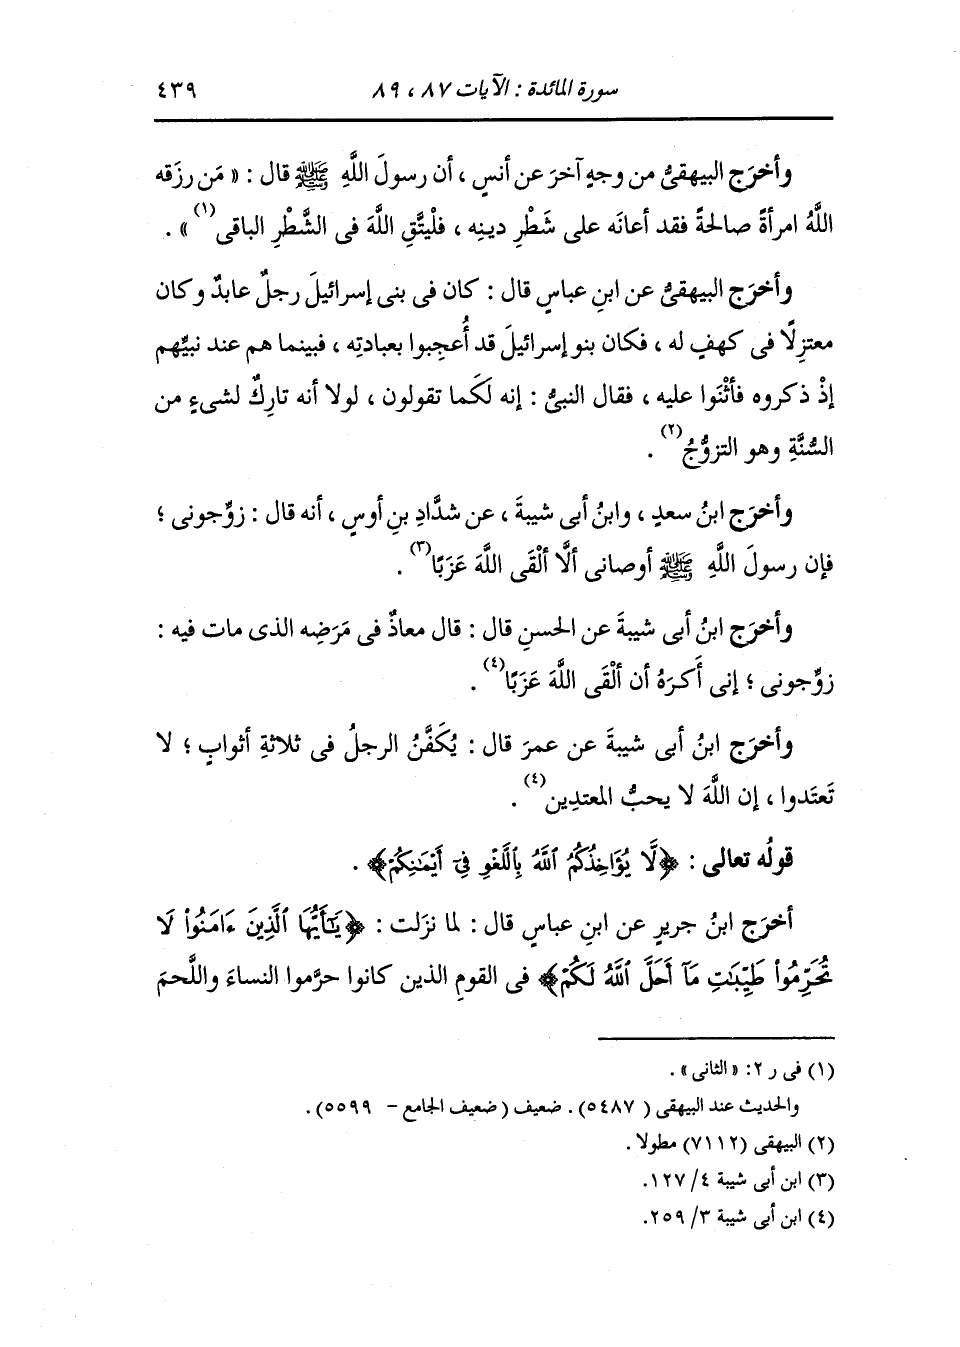 سورة المائدة : الآيات ٨٧ ، ٨٩
٤٣٩
وأخرَج البيهقىُّ من وجهٍ آخرَ عن أنسٍ ، أن رسولَ اللَّهِ ﷺ قال : « مَن رزَقه
اللَّهُ امرأةً صالحةً فقد أعانَه على شَطْرِ دينِه ، فلْيتَّقِ اللَّهَ فى الشَّطْرِ الباقى(١) » .
وأخرَج البيهقىُّ عن ابنِ عباسٍ قال : كان فى بنى إسرائيلَ رجلٌ عابدٌ وكان
معتزِلًا فى كهفٍ له ، فكان بنو إسرائيلَ قد أُعجِبوا بعبادتِه ، فبينما هم عند نبيِّهم
إذْ ذكروه فأثْنَوا عليه ، فقال النبىُّ : إنه لَكَما تقولون ، لولا أنه تارِكٌ لشىءٍ من
السُّنَّةِ وهو التزوُّجُ(٢) .
وأخرَج ابنُ سعدٍ ، وابنُ أبى شيبةَ ، عن شدَّادِ بنِ أوسٍ ، أنه قال : زوِّجونى ؛
فإن رسولَ اللَّهِ ﷺ أوصانى ألَّا ألْقَى اللَّهَ عَزَبًا(٣) .
وأخرَج ابنُ أبى شيبةَ عن الحسنِ قال : قال معاذٌ فى مَرَضِه الذى مات فيه :
زوِّجونى ؛ إنى أَكرَهُ أن ألْقَى اللَّهَ عَزَبًا(٤) .
وأخرَج ابنُ أبى شيبةَ عن عمرَ قال : يُكَفَّنُ الرجلُ فى ثلاثةِ أثوابٍ ؛ لا
تَعتَدوا ، إن اللَّهَ لا يحبُّ المعتدِين(٤) .
قولُه تعالى : ﴿لَّا يُؤَاخِذُكُمُ ٱللَّهُ بِٱللَّغْوِ فِىٓ أَيْمَٰنِكُمْ﴾ .
أخرَج ابنُ جريرٍ عن ابنِ عباسٍ قال : لما نزَلت : ﴿يَٰٓأَيُّهَا ٱلَّذِينَ ءَامَنُوا۟ لَا
تُحَرِّمُوا۟ طَيِّبَٰتِ مَآ أَحَلَّ ٱللَّهُ لَكُمْ﴾ فى القومِ الذين كانوا حرَّموا النساءَ واللَّحمَ
(١) فى ر ٢: « الثانى » .
والحديث عند البيهقى ( ٥٤٨٧) . ضعيف (ضعيف الجامع - ٥٥٩٩) .
(٢) البيهقى (٧١١٢) مطولا .
(٣) ابن أبى شيبة ٤/ ١٢٧.
(٤) ابن أبى شيبة ٣/ ٢٥٩.